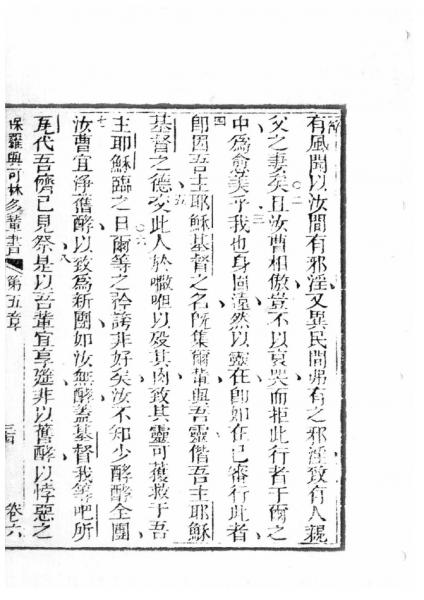 節
有風聞以汝間有邪淫又異民間弗有之邪淫致有人親
父之妻矣二且汝曹相傲豈不以哀哭而拒此行者于爾之
中為愈美乎三我也身固遠然以靈在即如在已審行此者
四即因吾主耶穌基督之名既集爾輩與吾靈偕吾主耶穌
基督之德五交此人於以殁其肉致其靈可獲救于吾
主耶穌臨之日六爾等之矜誇非好矣汝不知少酵酵全團
七汝曹宜淨舊酵以致為新團如汝無酵蓋基督我等吧所
瓦代吾儕已見祭八是以吾輩宜享筵非以舊酵以悖惡之
保羅與可林多輩書 第五章 卷六